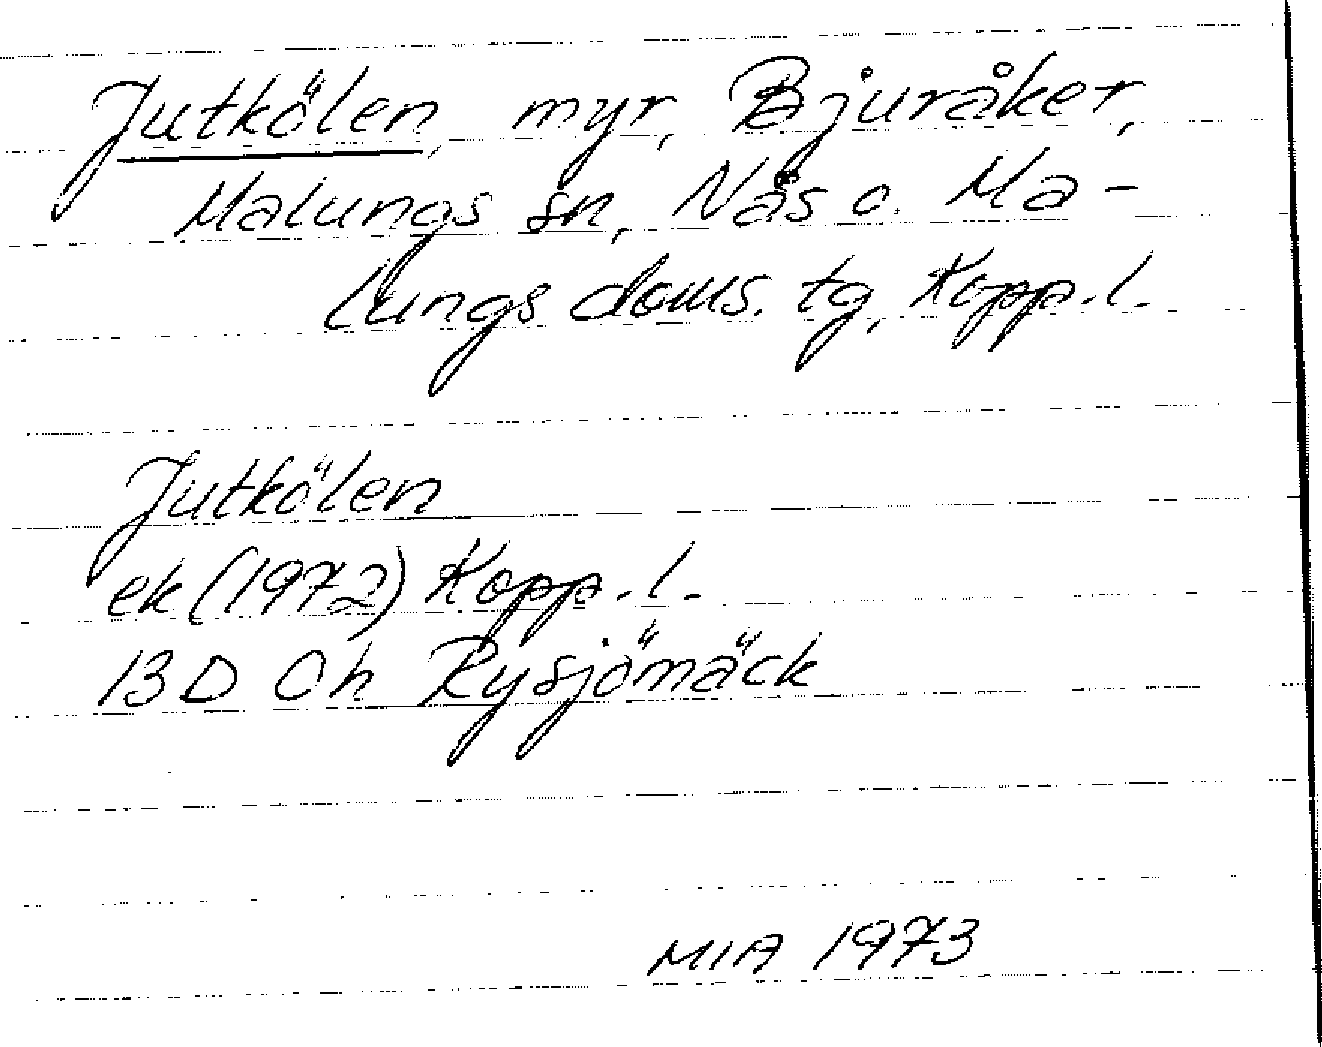 Jutkölen, myr, Bjuråker,
Malungs sn, Nås o. Ma-
lungs doms. tg, Kopp.l.
Jutkölen
ek (1972) Kopp.l.
13D Oh Rysjömäck
MIA 1973